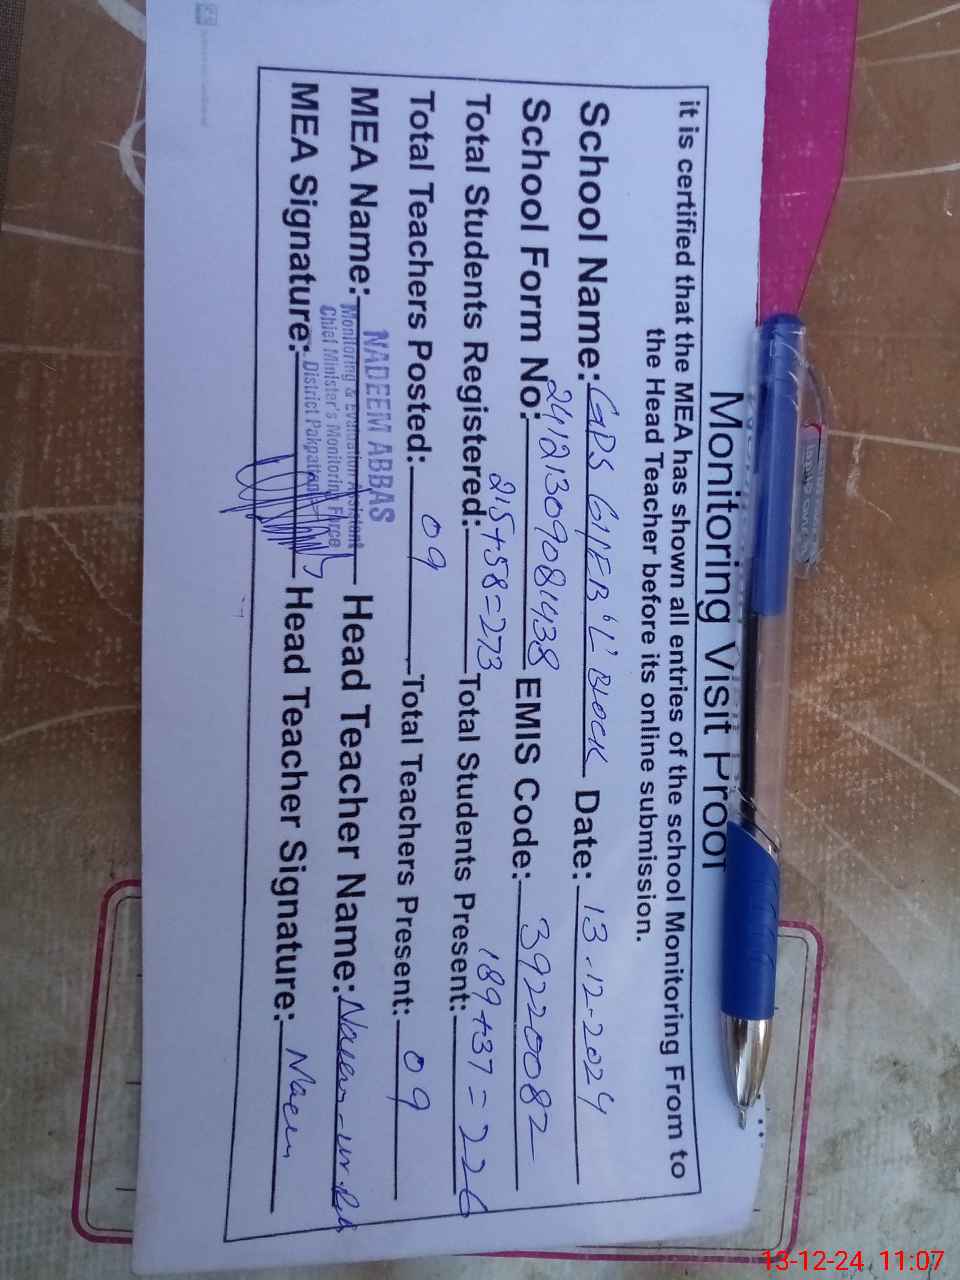 Monitoring Visit Proof
it is certified that the MEA has shown all entries of the school Monitoring From to
the Head Teacher before its online submission.
School Name: GPS 61/EB 'L' BLOCK Date: 13-12-2024
School Form No: 24121309081438 EMIS Code: 39220082
Total Students Registered: 215+58=273 Total Students Present: 189+37=226
Total Teachers Posted: 09 Total Teachers Present: 09
NADEEM ABBAS
MEA Name: Monitoring & Evaluation Assistant Head Teacher Name:
Chief Minister's Monitoring Force
MEA Signature: District Pakpattan Head Teacher Signature:
13-12-24, 11:07